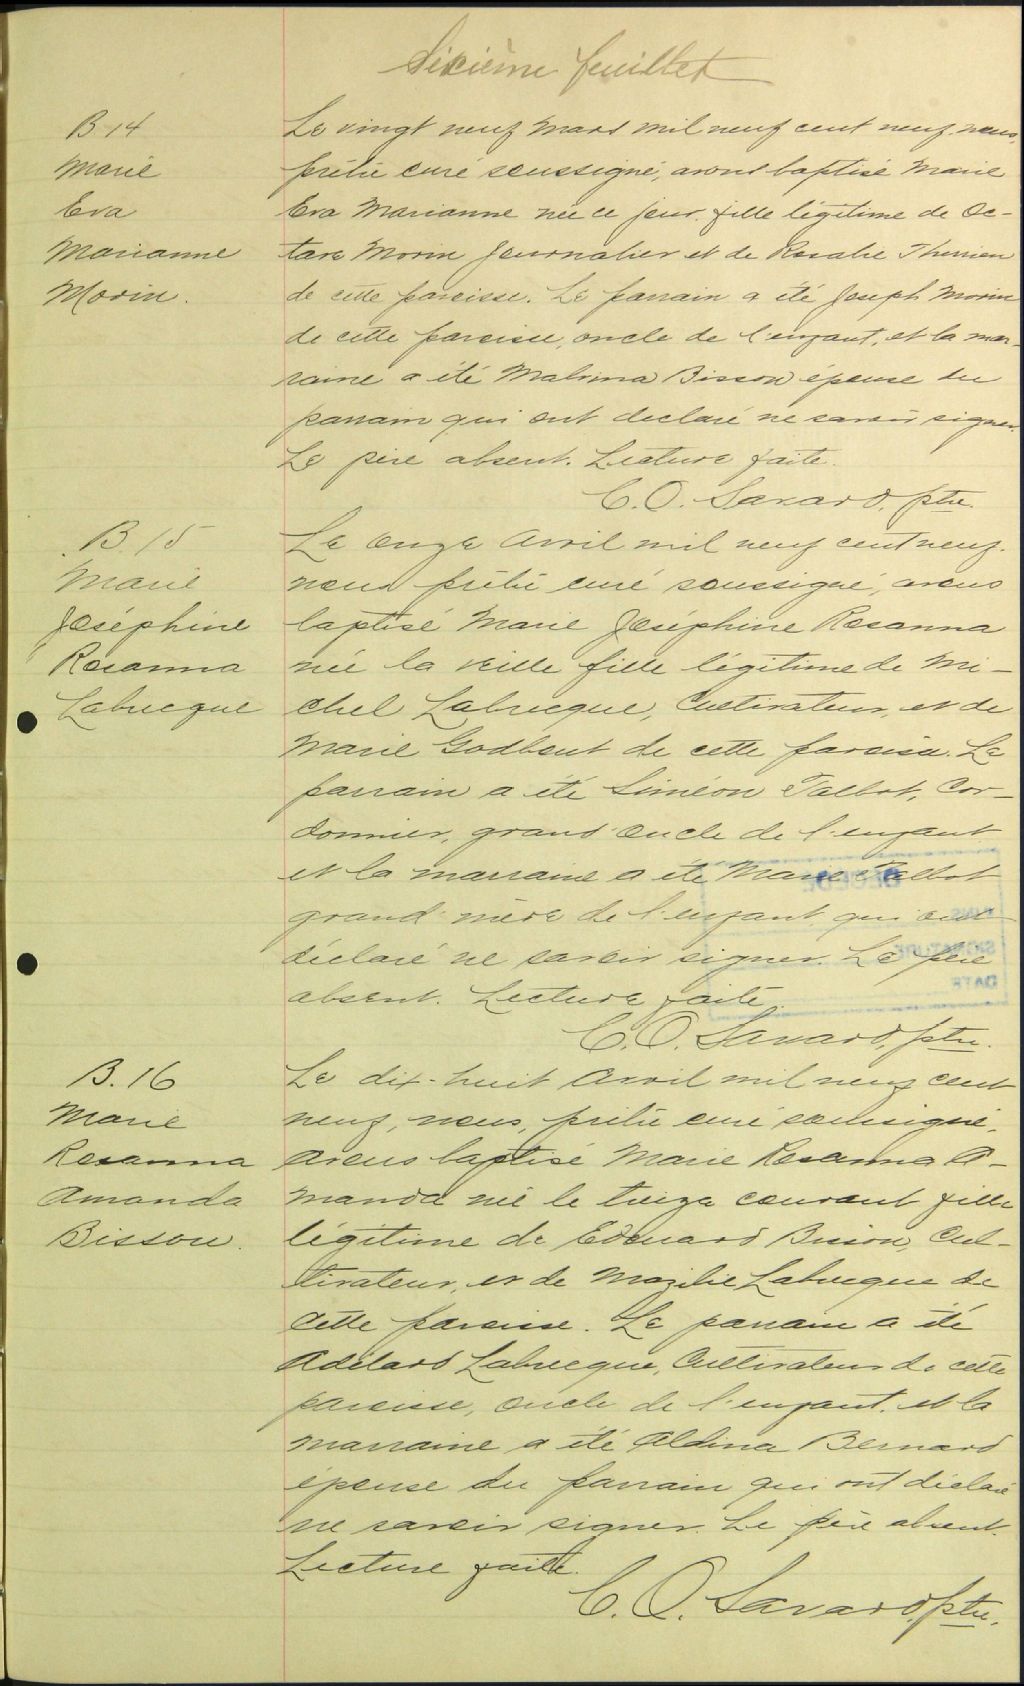 Sixième feuillet
B-14
Marie
Eva
Marianne
Morin.
Le vingt neuf Mars mil neuf cent neuf nous,
prêtre curé soussigné, avons baptisé Marie
Eva Marianne née ce jour, fille légitime de Oc-
tave Morin Journalier et de Rosalie Therrien
de cette paroisse. Le parrain a été Joseph Morin
de cette paroisse, oncle de l'enfant, et la mar-
raine a été Malvina Bisson épouse du
parrain qui ont déclaré ne savoir signer.
Le père absent. Lecture faite.
C. O. Savard, ptre.
B. 15
Marie
Joséphine
Rosanna
Labrecque
Le onze Avril mil neuf cent neuf.
nous prêtre curé soussigné, avons
baptisé Marie Joséphine Rosanna
née la veille fille légitime de Mi-
chel Labrecque, Cultivateur, et de
Marie Godbout de cette paroisse. Le
parrain a été Siméon Talbot, Cor-
donnier, grand oncle de l'enfant
et la marraine a été Marie Talbot
grand'mère de l'enfant qui ont
déclaré ne savoir signer. Le père
absent. Lecture faite.
C. O. Savard, ptre.
B. 16
Marie
Rosanna
Amanda
Bisson.
Le dix-huit Avril mil neuf cent
neuf, nous, prêtre curé soussigné,
avons baptisé Marie Rosanna A-
manda née le treize courant fille
légitime de Edouard Bisson, Cul-
tivateur, et de Mazilie Labrecque de
cette paroisse. Le parrain a été
Adélard Labrecque, Cultivateur de cette
paroisse, oncle de l'enfant, et la
marraine a été Aldina Bernard
épouse du parrain qui ont déclaré
ne savoir signer. Le père absent.
Lecture faite.
C. O. Savard, ptre.